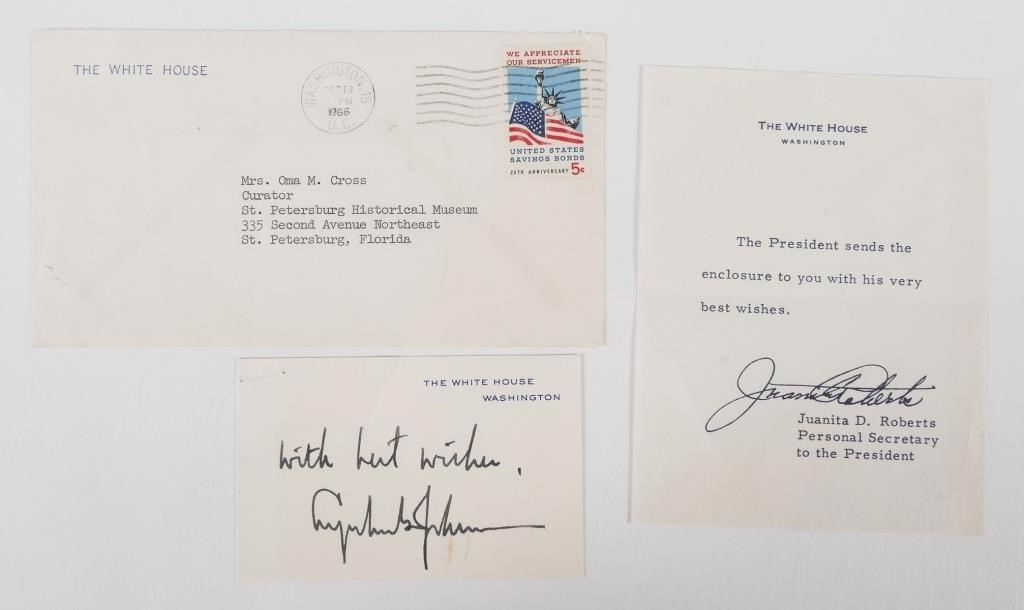 THE WHITE HOUSE
WASHINGTON, 15
DEC 19
PM
1966
D.C.
WE APPRECIATE
OUR SERVICEMEN
UNITED STATES
SAVINGS BONDS
25TH ANNIVERSARY 5¢
Mrs. Oma M. Cross
Curator
St. Petersburg Historical Museum
335 Second Avenue Northeast
St. Petersburg, Florida
THE WHITE HOUSE
WASHINGTON
With best wishes,
Lyndon B. Johnson
THE WHITE HOUSE
WASHINGTON
The President sends the
enclosure to you with his very
best wishes.
Juanita Roberts
Juanita D. Roberts
Personal Secretary
to the President